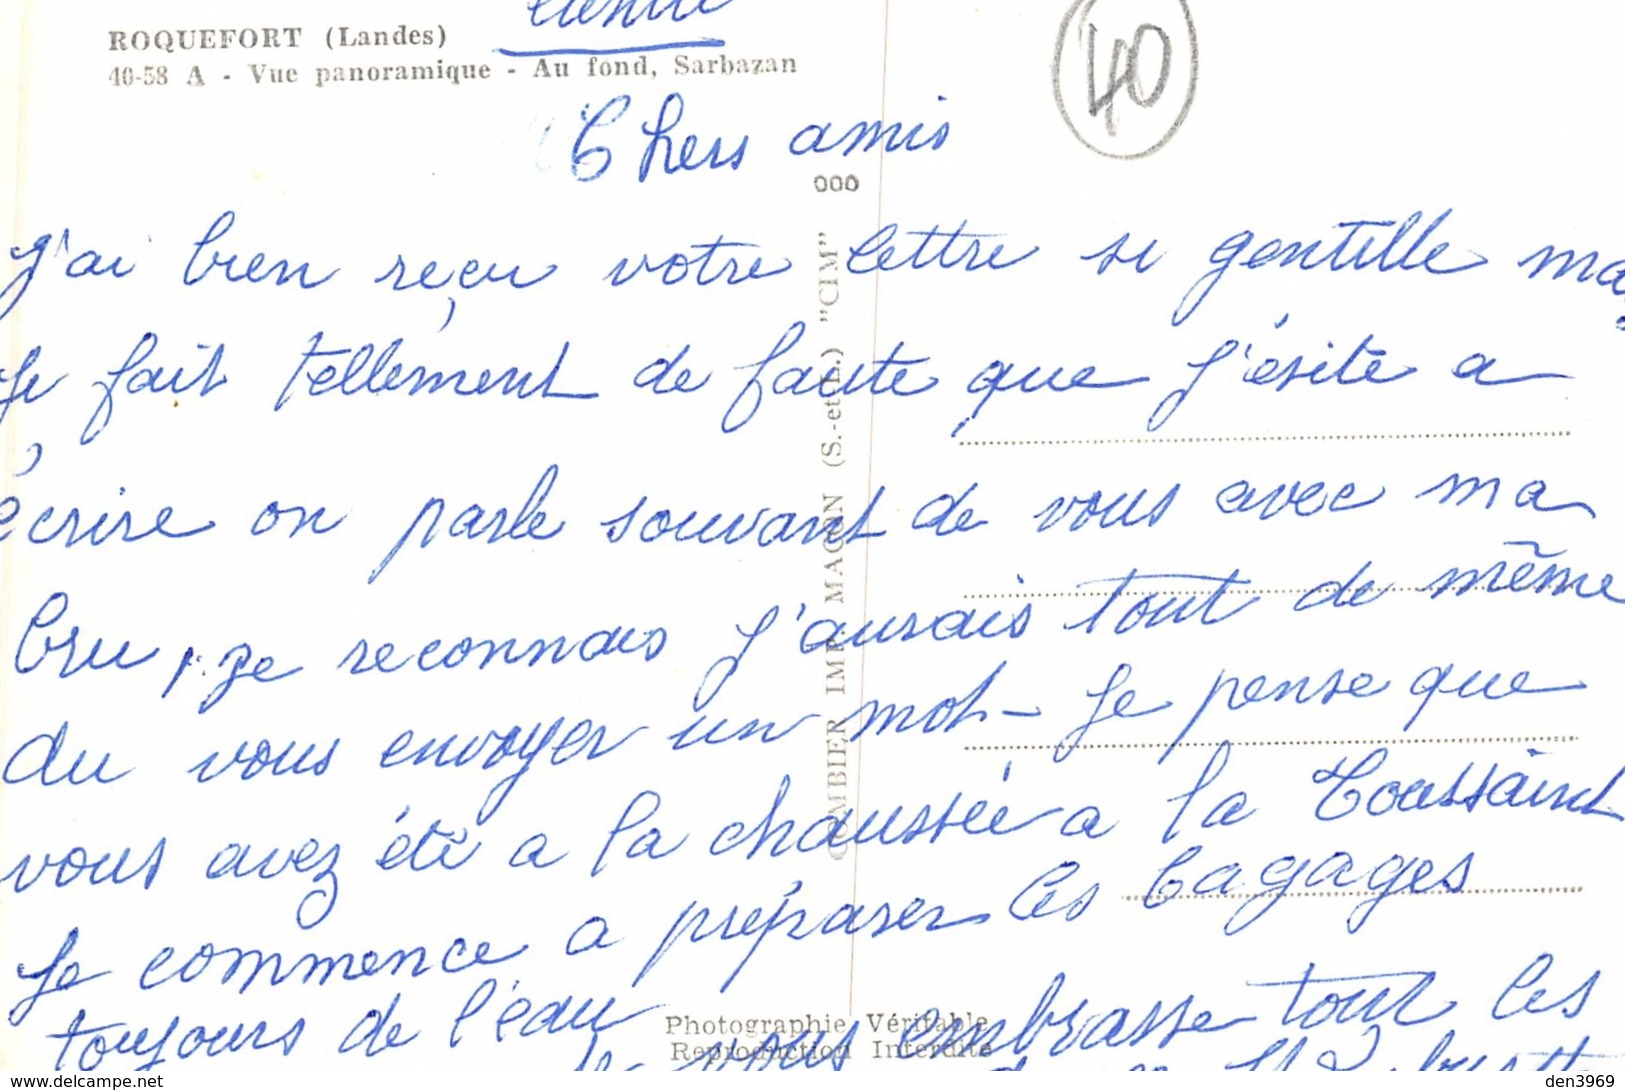 ROQUEFORT (Landes)
40-58 A - Vue panoramique - Au fond, Sarbazan
40
Chers amis
000
J'ai bien reçu votre lettre si gentille mais
Je fait tellement de faute que j'ésite a
écrire on parle souvant de vous avec ma
bru, je reconnais j'aurais tout de même
du vous envoyer un mot - Je pense que
vous avez été a la chaussée a la Toussaint
Je commence a préparer les bagages
toujours de l'eau
Je vous embrasse tout les
COMBIER IMP. MACON (S.-et-L.) "CIM"
Photographie Véritable
Reproduction Interdite
www.delcampe.net
den3969